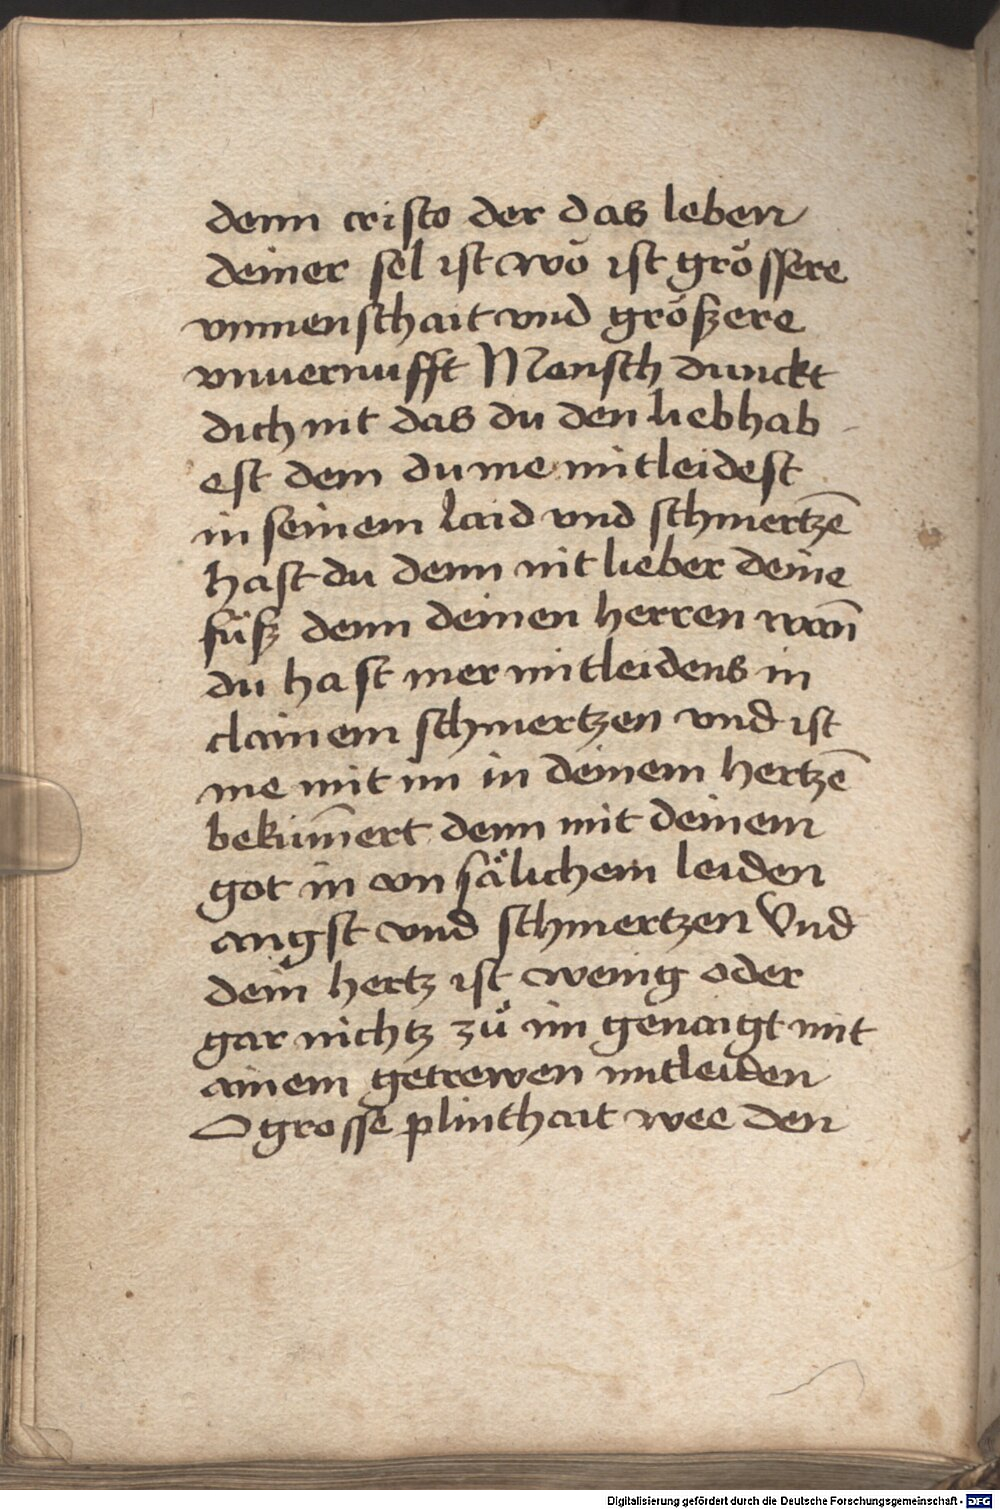 denn cristo der das leben
deiner sel ist wo ist grössere
vnmenschait vnd größere
vnuernufft Mensch dunckt
dich nit das du den liebhab
est dem du me mitleidest
in seinem laid vnd schmertzē
hast du denn nit lieber deine
füß denn deinen herren wan̄
du hast mer mitleidens in
clainem schmertzen vnd ist
me mit im in deinem hertzē
bekūmert denn mit deinem
got in vnsälichem leiden
angst vnd schmertzen Vnd
dein hertz ist wenig oder
gar nichtz zů im genaigt mit
ainem getrewen mitleiden
O grosse plinthait wee den
Digitalisierung gefördert durch die Deutsche Forschungsgemeinschaft - DFG